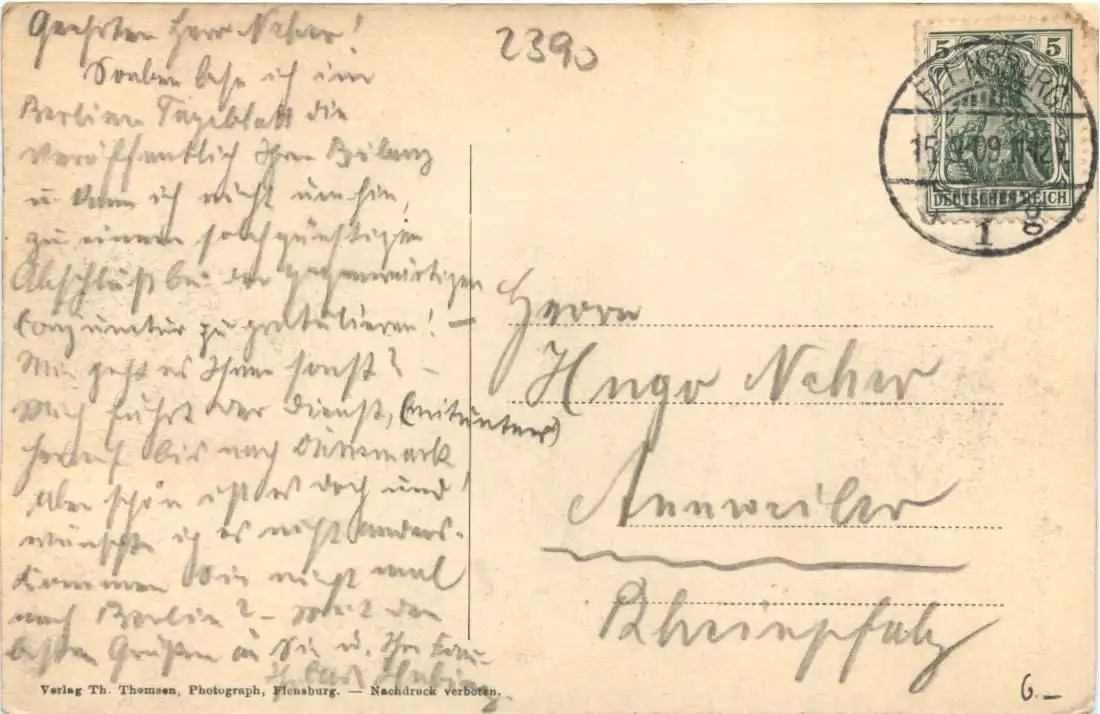 Geehrter Herr Naher!
Soeben lese ich im
Berliner Tageblatt die
Veröffentlich Ihrer Bilanz
u. kann ich nicht umhin,
zu einem so günstigen
Abschluß bei der gegenwärtigen
Conjunctur zu gratulieren! –
Wie geht es Ihnen sonst? –
Mich führt der Dienst, (mitunter)
herauf bis nach Dänemark
Aber schön ist es doch und
wünschte ich es nicht anders.
Kommen Sie nicht mal
nach Berlin? – Mit den
besten Grüßen an Sie u. Ihre Frau
Ihr
2390
5 5
FLENSBURG
15. 09 11-12 V.
DEUTSCHES REICH
1 g
Herrn
Hugo Naher
Annweiler
Rheinpfalz
Verlag Th. Thomsen, Photograph, Flensburg. — Nachdruck verboten.
6.–